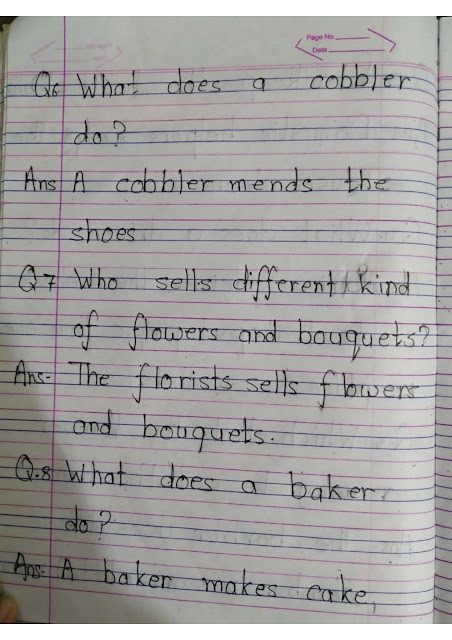 Page No.
Date
Q6 What does a cobbler
do?
Ans A cobbler mends the
shoes
Q7 Who sells different kind
of flowers and bouquets?
Ans- The florists sells flowers
and bouquets.
Q.8 What does a baker
do?
Ans- A baker makes cake,